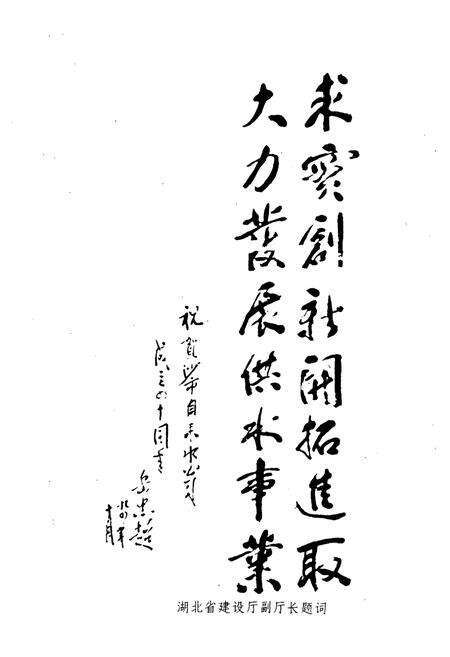 求实创新開拓進取
大力發展供水事業
祝贺沙市自来水公司
成立四十周年
湖北省建设厅副厅长题词